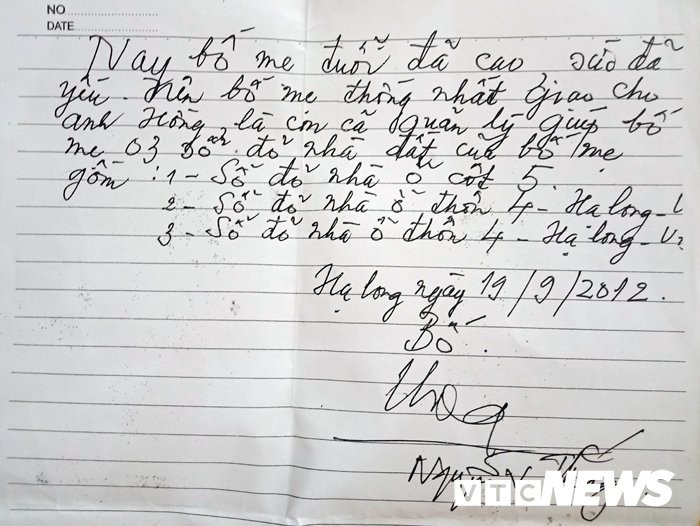 NO
DATE
Nay bố mẹ đuổi đã cao sức đã
yếu. Nên bố mẹ thống nhất giao cho
anh Hồng là con cả quản lý giúp bố
mẹ 03 sổ đỏ nhà đất của bố mẹ
gồm: 1 - Sổ đỏ nhà ở cột 5.
2 - Sổ đỏ nhà ở thôn 4 - Hạ long -
3 - Sổ đỏ nhà ở thôn 4 - Hạ long -
Hạ long ngày 19/9/2012.
Bố.
VTC NEWS